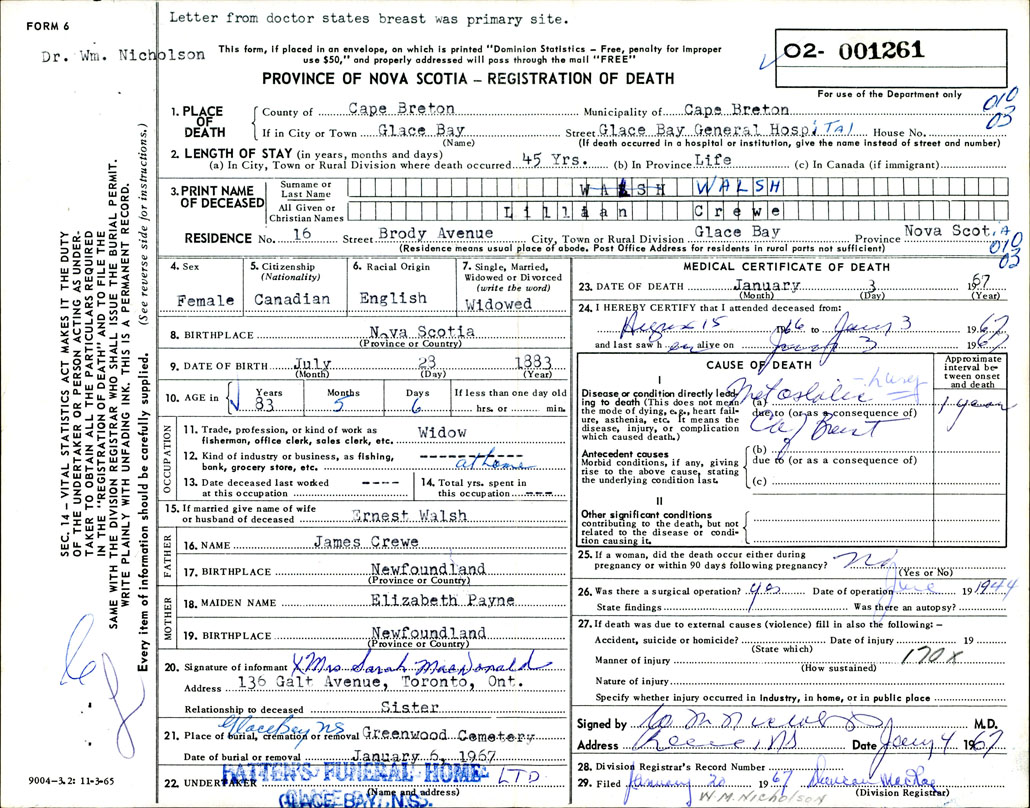 Letter from doctor states breast was primary site.
FORM 6
Dr. Wm. Nicholson
This form, if placed in an envelope, on which is printed "Dominion Statistics – Free, penalty for improper
use $50," and properly addressed will pass through the mail "FREE"
PROVINCE OF NOVA SCOTIA – REGISTRATION OF DEATH
02- 001261
For use of the Department only
010
03
SEC. 14 – VITAL STATISTICS ACT MAKES IT THE DUTY
OF THE UNDERTAKER OR PERSON ACTING AS UNDER-
TAKER TO OBTAIN ALL THE PARTICULARS REQUIRED
IN THE "REGISTRATION OF DEATH" AND TO FILE THE
SAME WITH THE DIVISION REGISTRAR WHO SHALL ISSUE THE BURIAL PERMIT.
WRITE PLAINLY WITH UNFADING INK. THIS IS A PERMANENT RECORD.
Every item of information should be carefully supplied. (See reverse side for instructions.)
1. PLACE OF DEATH
County of Cape Breton Municipality of Cape Breton
If in City or Town Glace Bay Street Glace Bay General Hospital House No.
(Name) (If death occurred in a hospital or institution, give the name instead of street and number)
2. LENGTH OF STAY (in years, months and days)
(a) In City, Town or Rural Division where death occurred 45 Yrs. (b) In Province Life (c) In Canada (if immigrant)
3. PRINT NAME OF DECEASED
Surname or Last Name WALSH WALSH
All Given or Christian Names Lillian Crewe
RESIDENCE No. 16 Street Brody Avenue City, Town or Rural Division Glace Bay Province Nova Scotia
(Residence means usual place of abode. Post Office Address for residents in rural parts not sufficient)
010
03
4. Sex Female
5. Citizenship (Nationality) Canadian
6. Racial Origin English
7. Single, Married, Widowed or Divorced (write the word) Widowed
8. BIRTHPLACE Nova Scotia
(Province or Country)
9. DATE OF BIRTH July 28 1883
(Month) (Day) (Year)
10. AGE in Years 83 Months 5 Days 6 If less than one day old hrs. or min.
OCCUPATION
11. Trade, profession, or kind of work as fisherman, office clerk, sales clerk, etc. Widow
12. Kind of industry or business, as fishing, bank, grocery store, etc. at home
13. Date deceased last worked at this occupation ----
14. Total yrs. spent in this occupation ---
15. If married give name of wife or husband of deceased Ernest Walsh
FATHER
16. NAME James Crewe
17. BIRTHPLACE Newfoundland
(Province or Country)
MOTHER
18. MAIDEN NAME Elizabeth Payne
19. BIRTHPLACE Newfoundland
(Province or Country)
20. Signature of informant X Mrs Sarah MacDonald
Address 136 Galt Avenue, Toronto, Ont.
Relationship to deceased Sister
Glace Bay NS
21. Place of burial, cremation or removal Greenwood Cemetery
Date of burial or removal January 6, 1967
22. UNDERTAKER PATTEN'S FUNERAL HOME LTD
(Name and address)
GLACE BAY, N.S.
9004-3.2: 11-3-65
MEDICAL CERTIFICATE OF DEATH
23. DATE OF DEATH January 3 1967
(Month) (Day) (Year)
24. I HEREBY CERTIFY that I attended deceased from:
August 15 1966 to Jany 3 1967
and last saw her alive on Jany 3 1967
CAUSE OF DEATH
Approximate interval between onset and death
I
Disease or condition directly leading to death (This does not mean the mode of dying, e.g., heart failure, asthenia, etc. It means the disease, injury, or complication which caused death.)
(a) Metastatic - lung
due to (or as a consequence of)
Ca of Breast
1 year
Antecedent causes
Morbid conditions, if any, giving rise to the above cause, stating the underlying condition last.
(b)
due to (or as a consequence of)
(c)
II
Other significant conditions
contributing to the death, but not related to the disease or condition causing it.
25. If a woman, did the death occur either during pregnancy or within 90 days following pregnancy? No
(Yes or No)
26. Was there a surgical operation? yes Date of operation June 1944
State findings Was there an autopsy?
27. If death was due to external causes (violence) fill in also the following: –
Accident, suicide or homicide? Date of injury 19
(State which)
Manner of injury 170x
(How sustained)
Nature of injury
Specify whether injury occurred in Industry, in home, or in public place
Signed by W M Nicholson M.D.
Address NS Date Jany 4 1967
28. Division Registrar's Record Number
29. Filed January 20 1967 Duncan MacRae
(Division Registrar)
W M. Nicholson